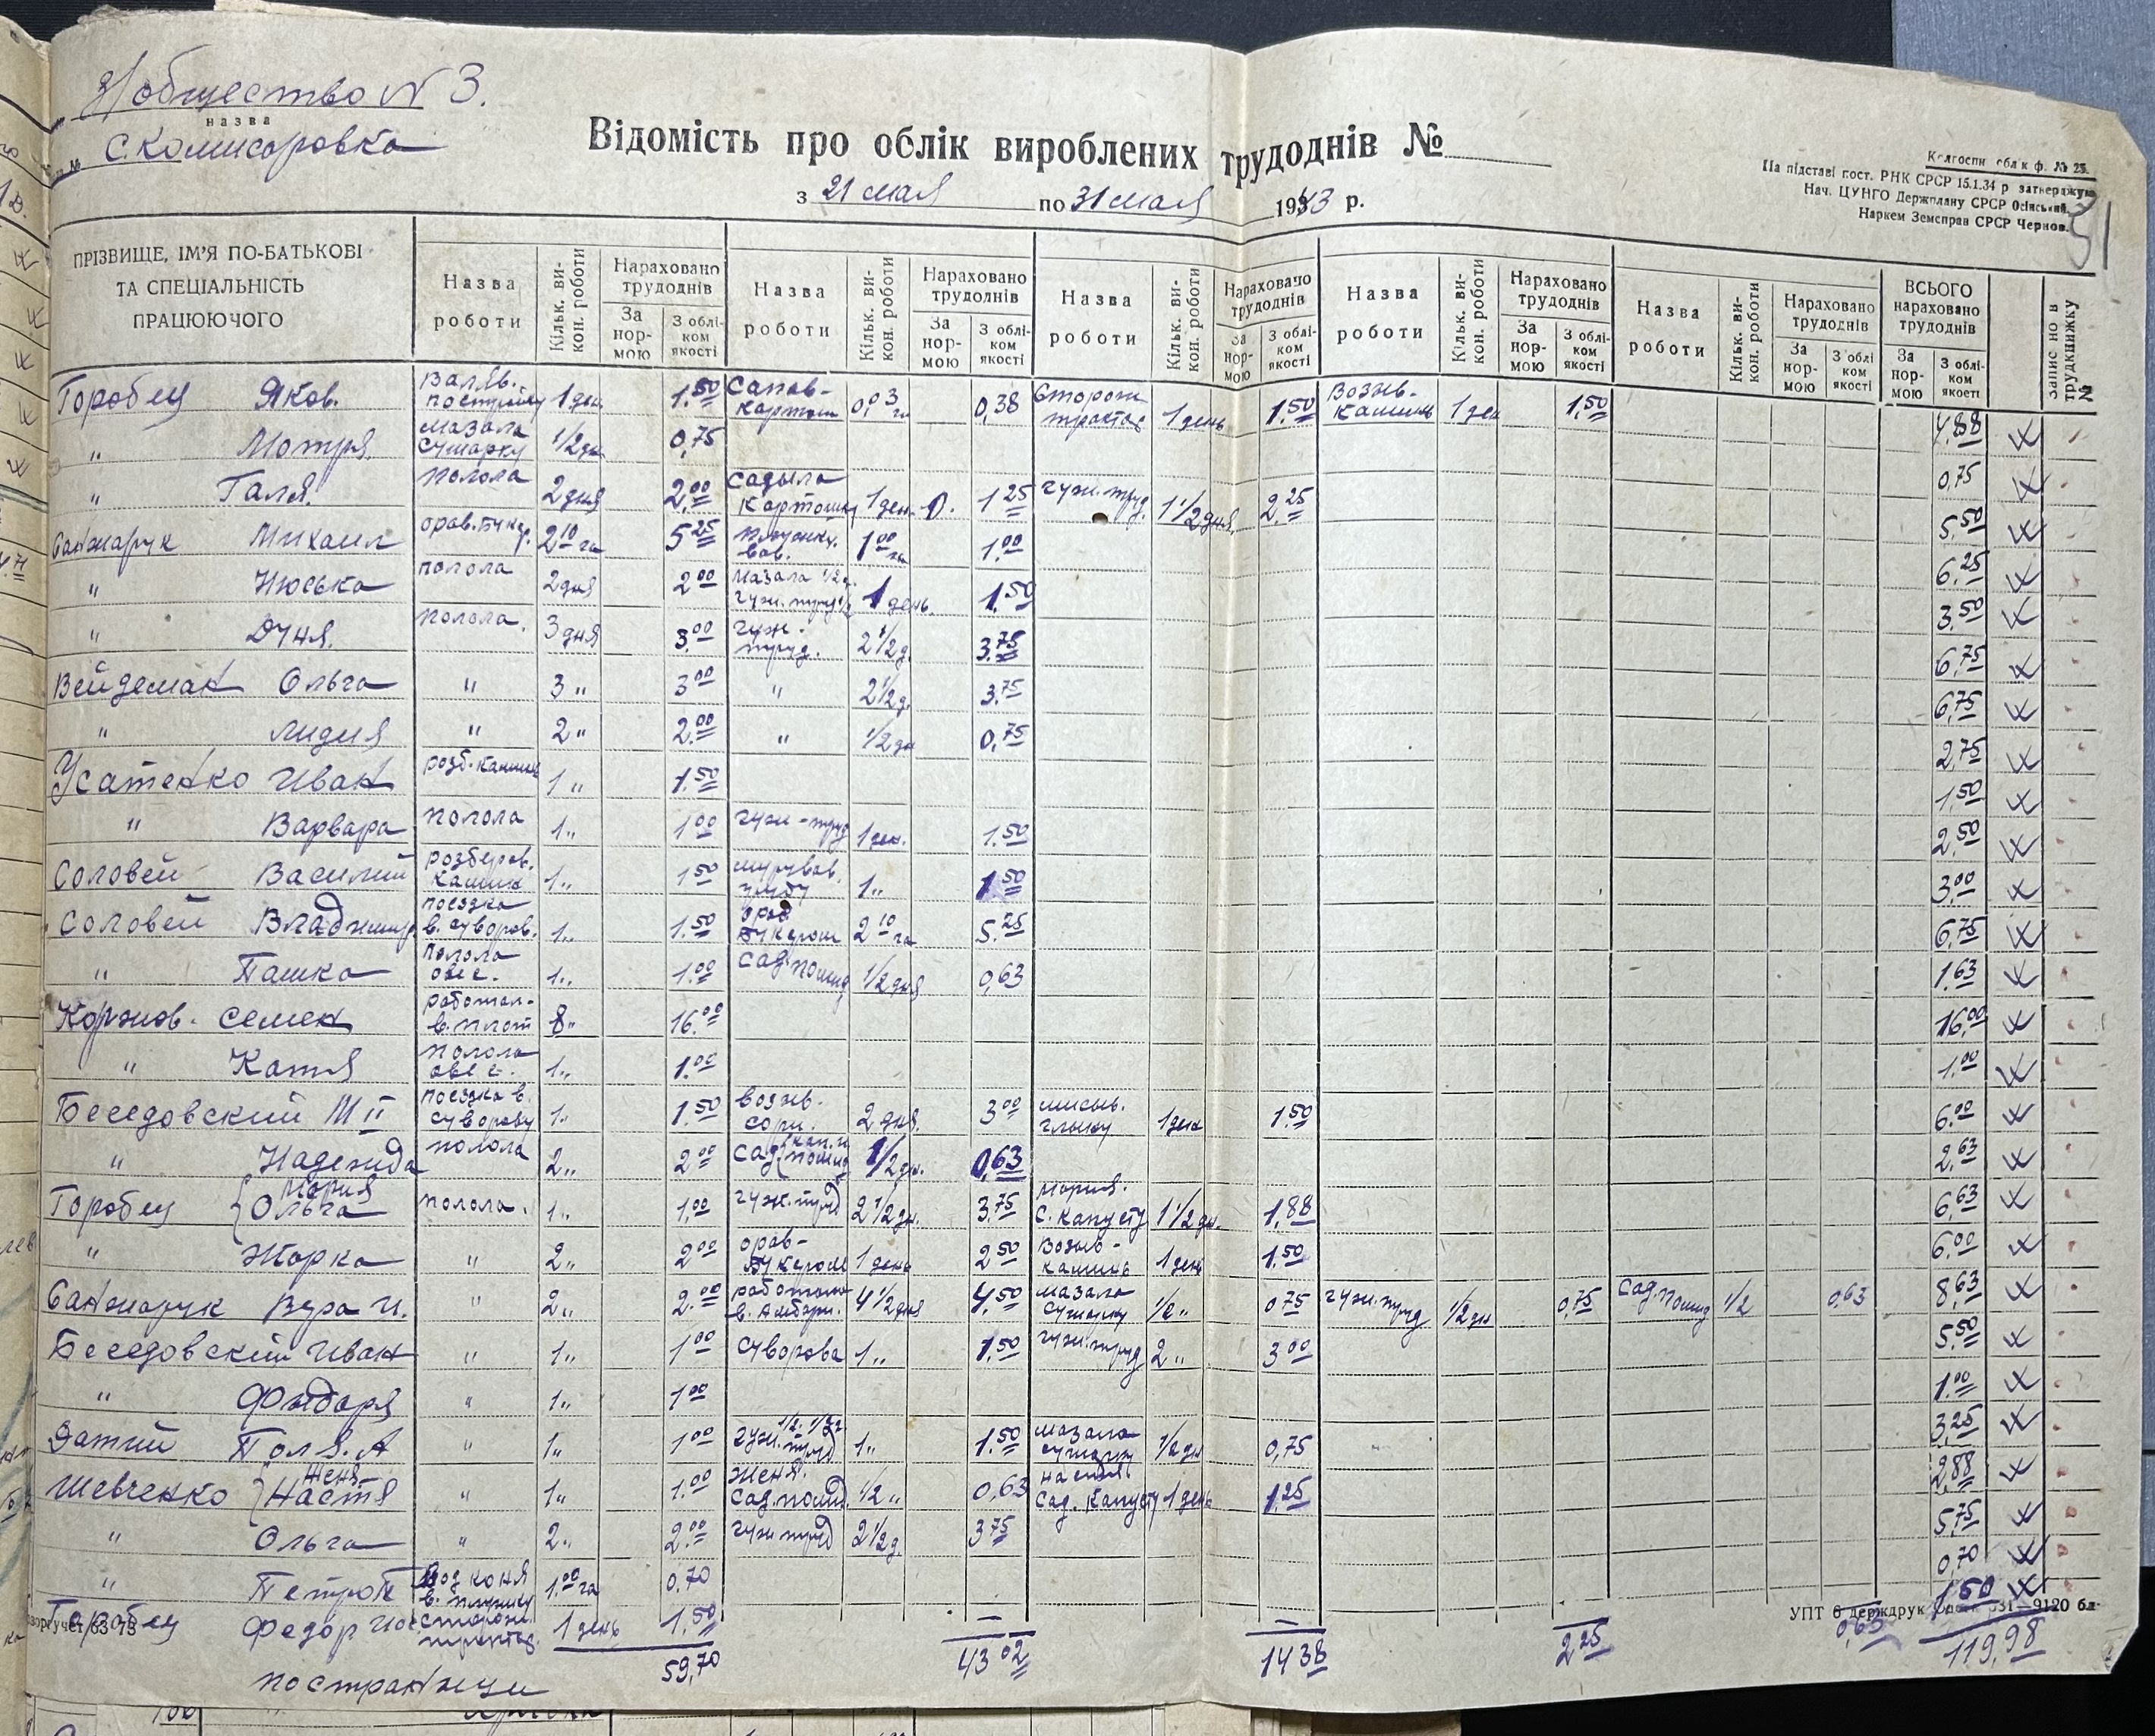 з/общество N 3.
назва
с. Комисаровка
Відомість про облік вироблених трудоднів №
з 21 мая по 31 мая 1943 р.
Колгоспн облік ф. № 25.
На підставі пост. РНК СРСР 15.1.34 р затверджую
Нач. ЦУНГО Держплану СРСР Осінський
Наркем Земсправ СРСР Чернов.
31
ПРІЗВИЩЕ, ІМ'Я ПО-БАТЬКОВІ ТА СПЕЦІАЛЬНІСТЬ ПРАЦЮЮЧОГО
Назва роботи Кільк. викон. роботи Нараховано трудоднів За нормою З обліком якості
Назва роботи Кільк. викон. роботи Нараховано трудоднів За нормою З обліком якості
Назва роботи Кільк. викон. роботи Нараховано трудоднів За нормою З обліком якості
Назва роботи Кільк. викон. роботи Нараховано трудоднів За нормою З обліком якості
Назва роботи Кільк. викон. роботи Нараховано трудоднів За нормою З обліком якості
ВСЬОГО нараховано трудоднів За нормою З обліком якості
запис но в трудкнижку №
Горобец Яков. Валяв. постройку 1 ден 1.50 Сапов. картош 0,03 га 0,38 Сторож трактор 1 день 1.50 Возив. камень 1 ден 1,50 4,88
" Мотря. мазала сушарку 1/2 дн 0,75 0,75
" Галя. полола 2 дня 2,00 садыла картошку 1 ден. 1 25 гуж. труд. 1 1/2 дня 2,25 5,50
Санжарук Михаил орав. букер. 2 10 га 5 25 1 00 га 1.00 6,25
" Нюська полола 2 дня 2 00 Мазала 1/2 д. гуж. труд 1/2 1 день. 1.50 3,50
" Дуня. полола. 3 дня 3.00 гуж. труд. 2 1/2 д. 3.75 6,75
Вейдеман Ольга " 3 " 3 00 " 2 1/2 д. 3.75 6,75
" Лидия " 2 " 2.00 " 1/2 дн 0,75 2,75
Усатенко Иван розб. камень 1 " 1.50 1,50
" Варвара полола 1 " 1 00 гуж-труд 1 ден. 1.50 2,50
Соловей Василий розберов. камень 1 " 1 50 1 " 1 50 3,00
Соловей Владимир поездка в. суворов. 1 " 1.50 орав букером 2 10 га 5.25 6,75
" Пашка полола овес. 1 " 1.00 сад. помид 1/2 дня 0,63 1.63
Коржов. Семен работал в. плот 8 " 16.00 16,00
" Катя полола овес. 1 " 1.00 1.00
Беседовский М II поездка в. суворову 1 " 1.50 возив. 2 дня 3 00 глыну 1 ден 1.50 6.00
" Надежда полола 2 " 2 00 сад. кап. и помид 1/2 дн. 0,63 2,63
Горобец { Мория Ольга полола. 1 " 1,00 гуж. труд 2 1/2 дн. 3.75 Мория. с. капусту 1 1/2 дн. 1,88 6,63
" Жорка " 2 " 2 00 орав- букером 1 день 2 50 Возив- камень 1 день 1.50 6.00
Санжарук Вера И. " 2 " 2.00 работала в. амбари. 4 1/2 дня 4,50 мазала сушарку 1/2 " 0 75 гуж. труд 1/2 дн 0,75 сад. помид 1/2 0,63 8,63
Беседовский Иван " 1 " 1 00 Суворова 1 " 1.50 гуж. труд 2 " 3 00 5,50
" " 1 " 1 00 1.00
Пол Я. А " 1 " 1 00 гуж. труд 1 " 1.50 мазала сушарку 1/2 дн 0,75 3,25
Шевченко } Женя Настя " 1 " 1.00 Женя. сад. помид. 1/2 " 0,63 настя. сад. капусту 1 день 1,25 2,88
" Ольга " 2 " 2.00 гуж труд 2 1/2 д. 3 75 5,75
" Петро П. Вод коня в. плужку 1.00 га 0.70 0,70
Горобец Федор сторож. трактор. 1 день 1,50 1,50
63 73
УПТ 6 держдрук 9120 бл.
пострanици 59,70 43 02 14 38 2 25 0,63 119,98